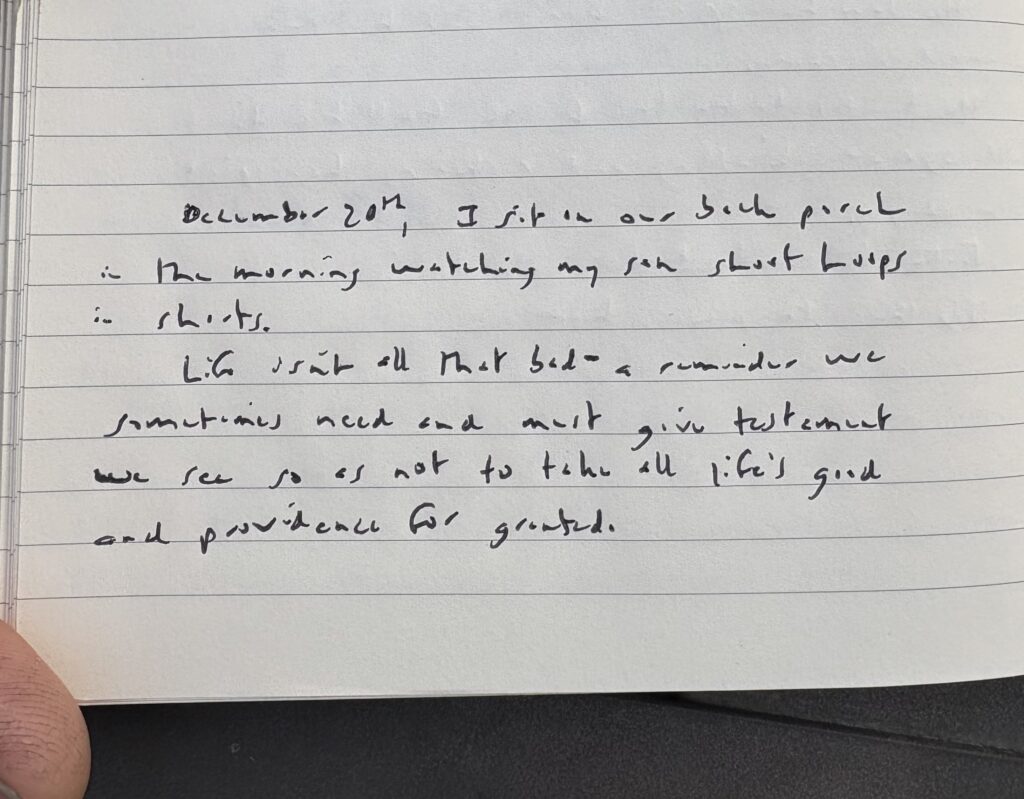 December 20th, I sit on our back porch
in the morning watching my son shoot hoops
in shorts.
Life isn't all that bad - a reminder we
sometimes need and must give testament
we see so as not to take all life's good
and providence for granted.